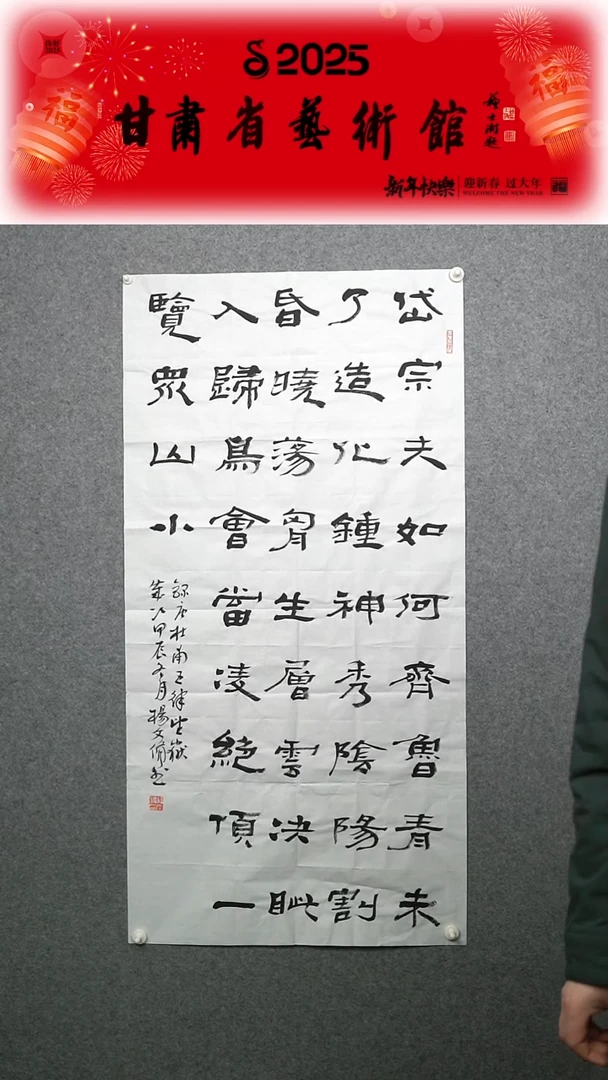 2025
甘肅省藝術館
福
福
新年快樂
迎新春 过大年
WELCOME THE NEW YEAR
岱宗夫如何齊魯青未
了造化鍾神秀陰陽割
昏曉蕩胷生層雲决眦
入歸鳥會當凌絶頂一
覽眾山小
錄唐杜甫五律望嶽
歲次甲辰冬月楊文書